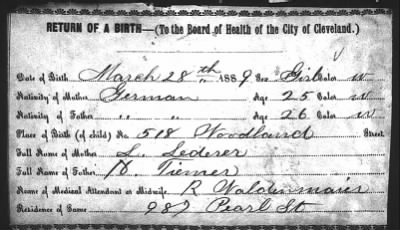 RETURN OF A BIRTH—(To the Board of Health of the City of Cleveland.)
Date of Birth March 28th 1889 Sex Girl Color w
Nativity of Mother German Age 25 Color w
Nativity of Father " " Age 26 Color w
Place of Birth (of child) No. 518 Woodland Street
Full Name of Mother L. Lederer
Full Name of Father
Name of Medical Attendant or Midwife, R Waldenmaier
Residence of Same 987 Pearl St